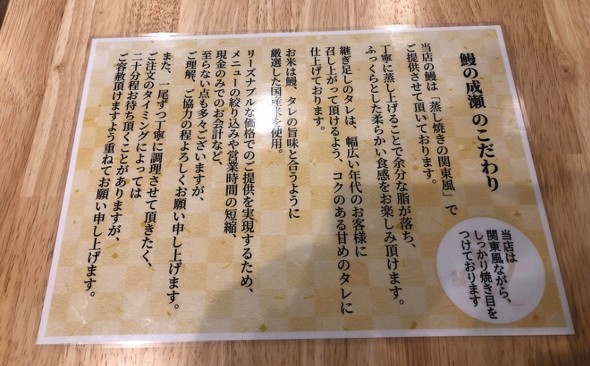 鰻の成瀬 のこだわり
当店は
関東風ながら、
しっかり焼き目を
つけております
当店の鰻は「蒸し焼きの関東風」で
ご提供させて頂いております。
丁寧に蒸し上げることで余分な脂が落ち、
ふっくらとした柔らかい食感をお楽しみ頂けます。
継ぎ足しのタレは、幅広い年代のお客様に
召し上がって頂けるよう、コクのある甘めのタレに
仕上げております。
お米は鰻、タレの旨味と合うように
厳選した国産米を使用。
リーズナブルな価格でのご提供を実現するため、
メニューの絞り込みや営業時間の短縮、
現金のみでのお会計など、
至らない点も多々ございますが、
ご理解、ご協力の程よろしくお願い申し上げます。
また、一尾ずつ丁寧に調理させて頂きたく、
ご注文のタイミングによっては
二十分程お待ち頂くことがありますが、
ご容赦頂けますよう重ねてお願い申し上げます。